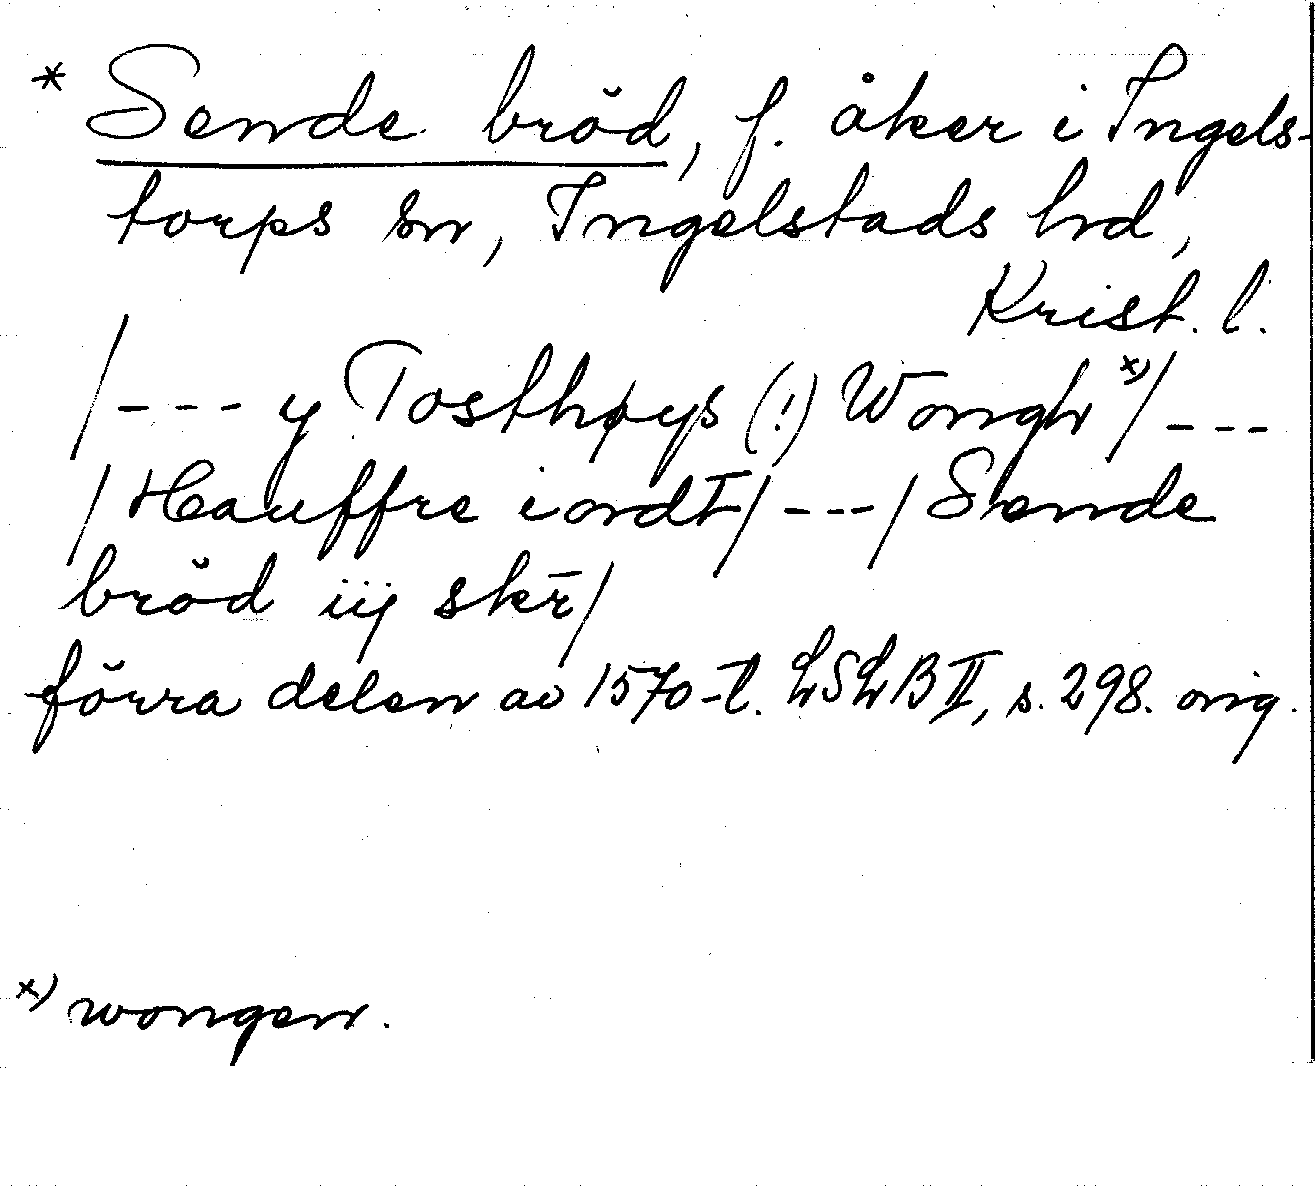 * Sende bröd, f. åker i Ingels-
torps sn, Ingelstads hd,
Krist. l.
/--- y Tosthøys (!) Wongh x)/ ---
/Hauffre iordt/---/Sende
bröd iij skr̄/
förra delen av 1570-t. LSLB II, s. 298. orig.
x) wongen.